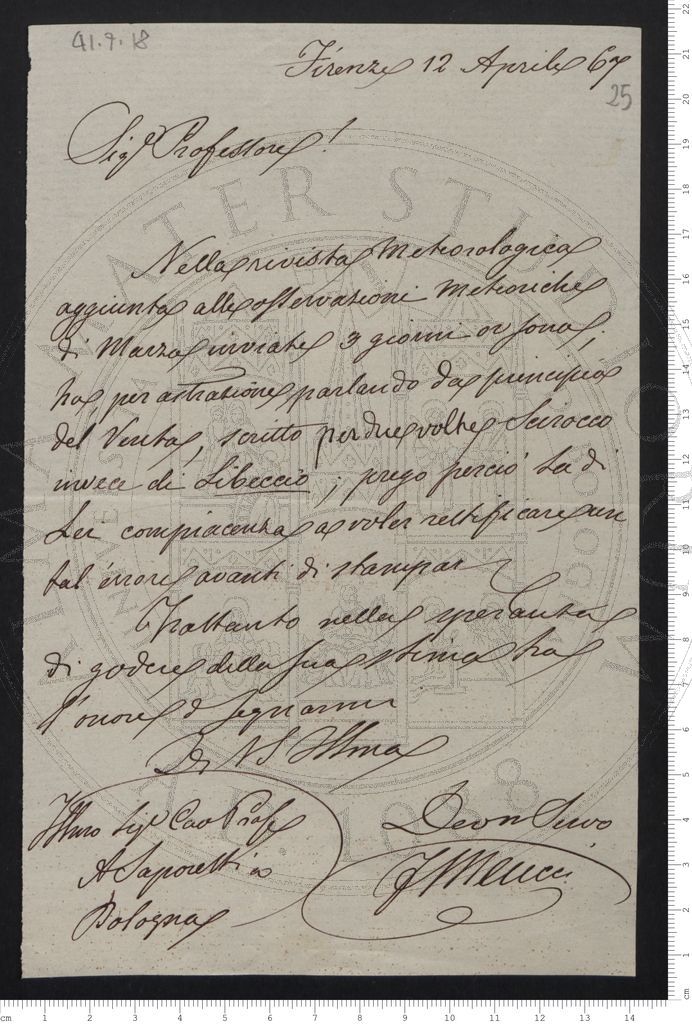 41.9.18
Firenze 12 Aprile 67
25
Sigr Professore!
Nella rivista Meteorologica
aggiunta alle osservazioni Meteoriche
di Marzo inviate 3 giorni or sono,
ho, per astrazione parlando da principio
del Vento, scritto per due volte Scirocco
invece di Libeccio; prego perciò La di
Lei compiacenza a voler rettificare un
tal errore avanti di stampar
Frattanto nella speranza
di godere della sua stima ho
l'onore di segnarmi
Di VS Illma
Illmo Sigr Cav Profe
A Saporetti
Bologna
Devm Servo
F Meucci
ALMA MATER STUDIORUM
A.D. 1088